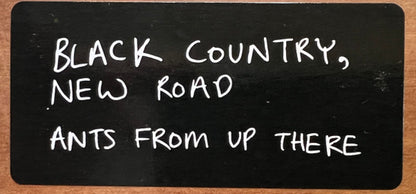 BLACK COUNTRY,
NEW ROAD
ANTS FROM UP THERE